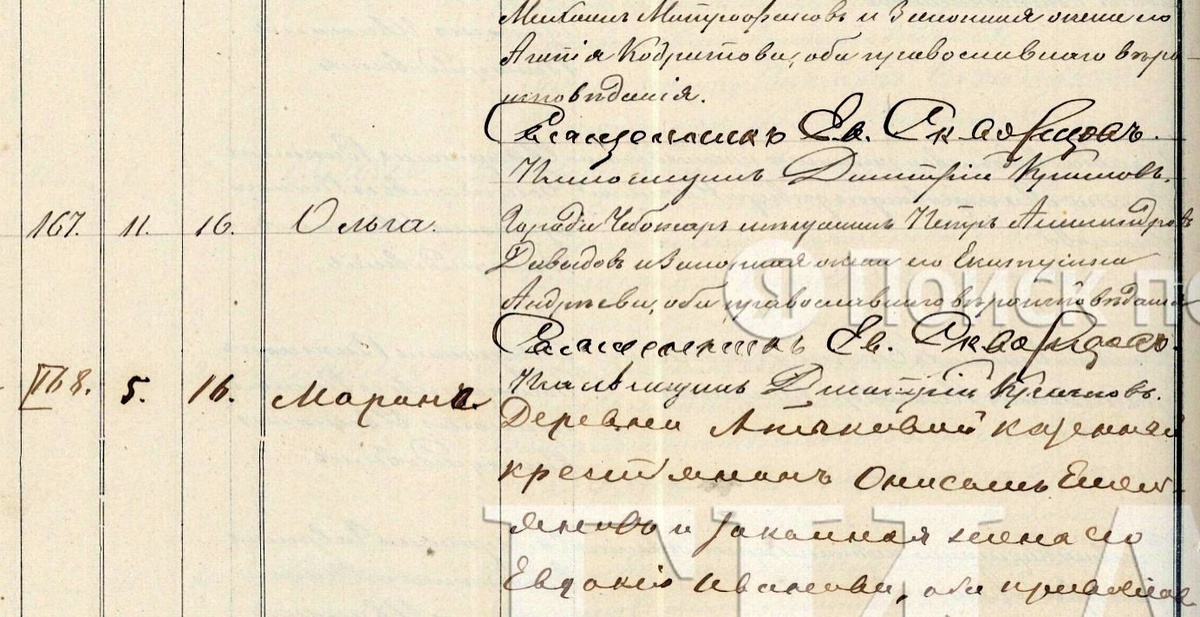 Михаилъ Митрофановъ и Законная жена его
Агапія Кодратова, оба православнаго вѣро
исповѣданія.
Священникъ Ев. Скворцовъ.
Псаломщикъ Дмитрій Крыловъ.
167. 11. 16. Ольга. Города Чебоксаръ мѣщанинъ Петръ Александровъ
Давыдовъ и Законная жена его Екатерина
Андреева, оба православнаго вѣроисповѣданія
Священникъ Ев. Скворцовъ.
Псаломщикъ Дмитрій Крыловъ.
168. 5. 16. Марина. Деревни казенный
крестьянинъ Онисимъ Емел
яновъ и законная жена его
Евдокія Иванова, оба православ
Поиск по